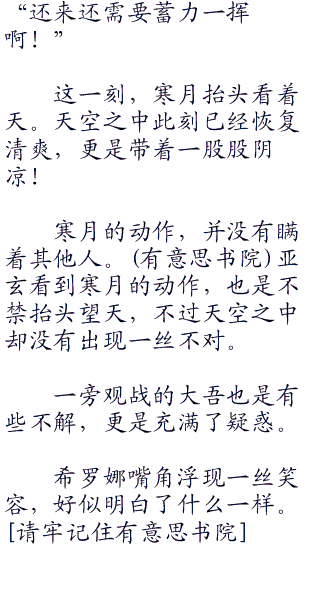 “还来还需要蓄力一挥
啊！”
这一刻，寒月抬头看着
天。天空之中此刻已经恢复
清爽，更是带着一股股阴
凉！
寒月的动作，并没有瞒
着其他人。(有意思书院)亚
玄看到寒月的动作，也是不
禁抬头望天，不过天空之中
却没有出现一丝不对。
一旁观战的大吾也是有
些不解，更是充满了疑惑。
希罗娜嘴角浮现一丝笑
容，好似明白了什么一样。
[请牢记住有意思书院]